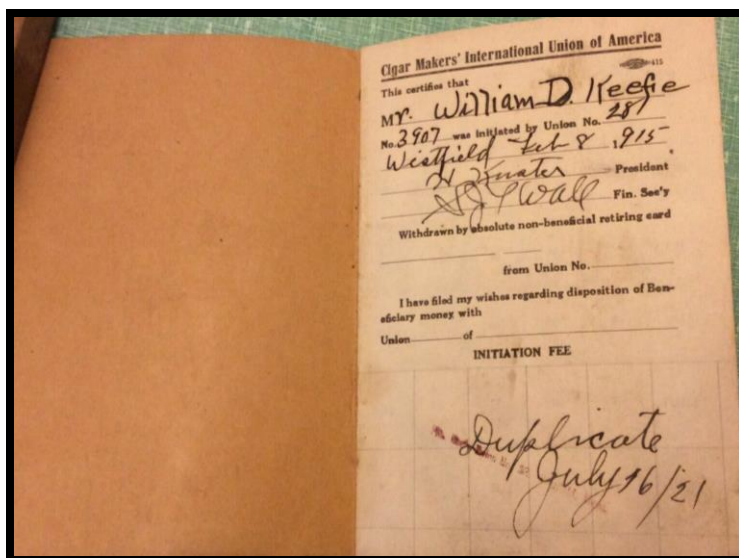 Cigar Makers' International Union of America
This certifies that
Mr. William D. Keefe
No. 3907 was initiated by Union No. 281
Westfield Feb 8, 1915
President
Wall Fin. Sec'y
Withdrawn by absolute non-beneficial retiring card
from Union No.
I have filed my wishes regarding disposition of Ben-
eficiary money with
Union of
INITIATION FEE
Duplicate
July 16/21